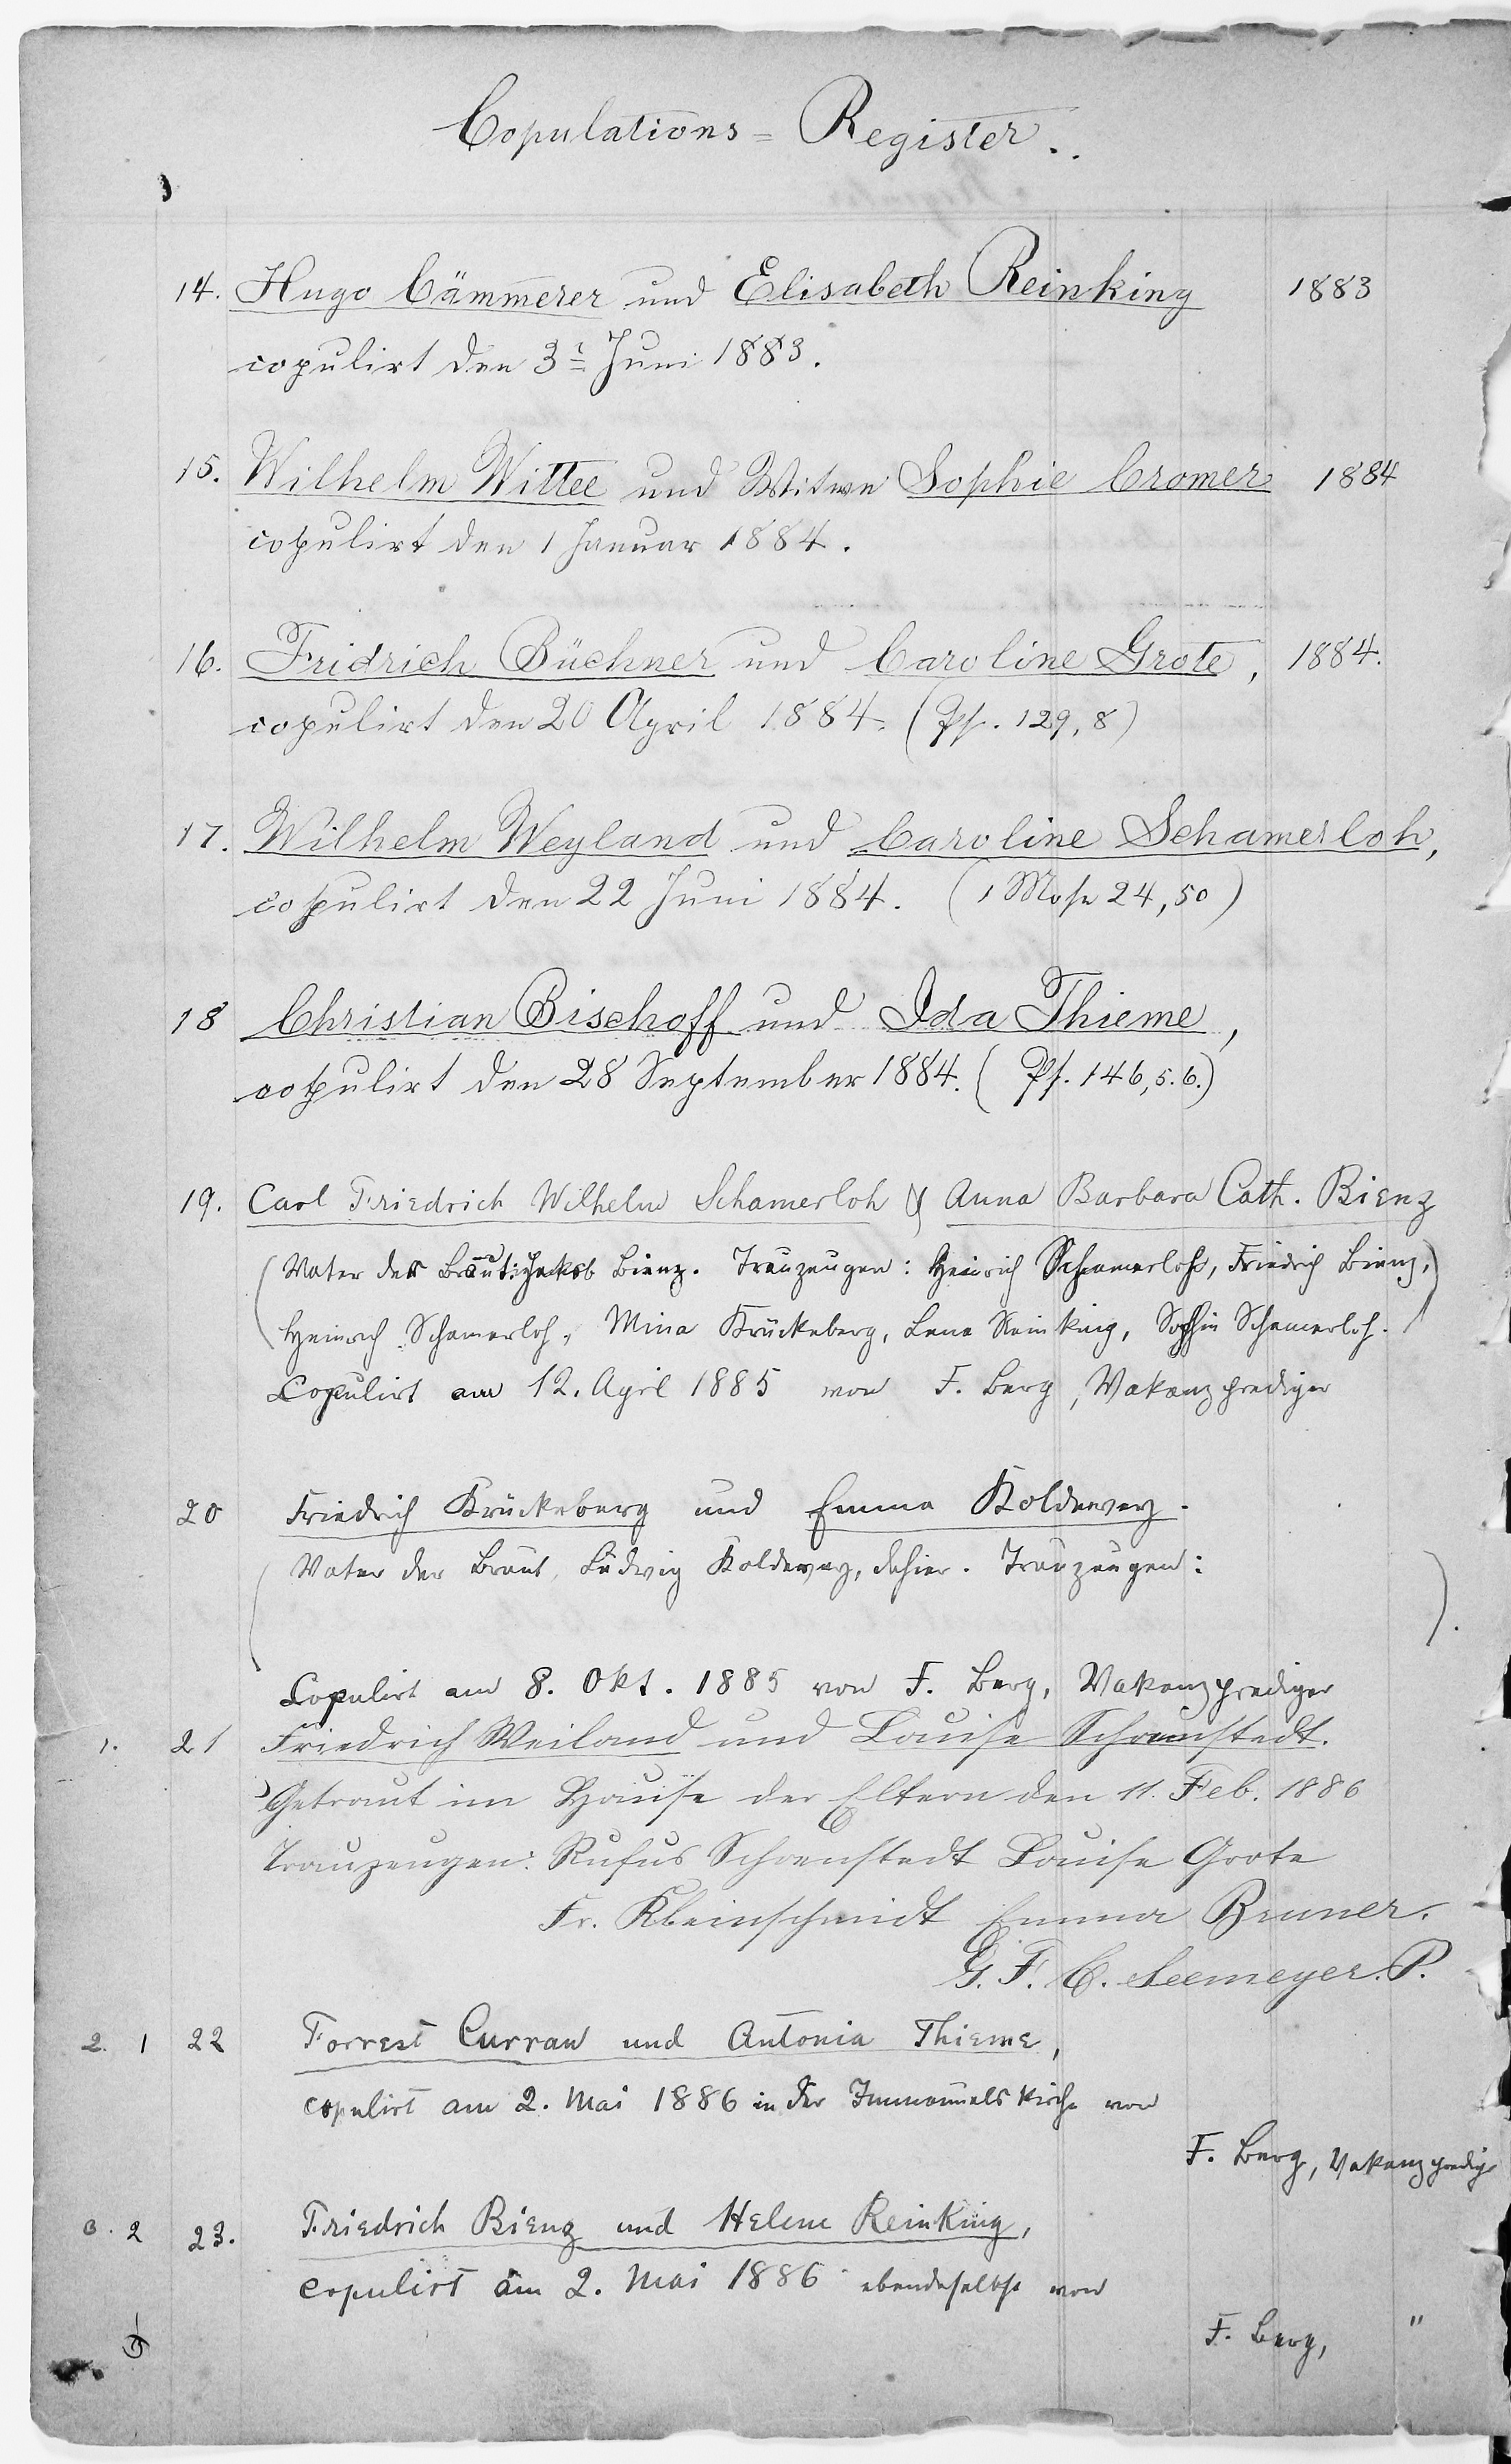 Copulations = Register.
14. Hugo Cämmerer und Elisabeth Reinking 1883
copulirt den 3t Juni 1883.
15. Wilhelm Wittee und Witwe Sophie Cromer 1884
copulirt den 1 Januar 1884.
16. Fridrich Büchner und Caroline Grote, 1884.
copulirt den 20 April 1884. (Ps. 129, 8)
17. Wilhelm Weyland und Caroline Schamerloh,
copulirt den 22 Juni 1884. (1 Mose 24, 50)
18 Christian Bischoff und Ida Thieme,
copulirt den 28 September 1884. (Ps. 146, 5. 6.)
19. Carl Friedrich Wilhelm Schamerloh & Anna Barbara Cath. Bienz
(Vater der Braut: Jakob Bienz. Trauzeugen: Heinrich Schamerloh, Friedrich Bienz,
Heinrich Schamerloh, Mina Krückeberg, Lena Reinking, Sophie Schamerloh.)
Copulirt am 12. April 1885 von F. Berg, Vakanzprediger
20 Friedrich Krückeberg und Emma Koldewey.
(Vater der Braut, Ludwig Koldewey, dahier. Trauzeugen:
).
Copulirt am 8. Okt. 1885 von F. Berg, Vakanzprediger
1. 21 Friedrich Weiland und Louise Schoenstedt.
Getraut im Hause der Eltern den 11. Feb. 1886
Trauzeugen: Rufus Schoenstedt Louise Grote
Fr. Kleinschmidt Emma Bruner.
G. F. C. Seemeyer. P.
2. 1 22 Forrest Curran und Antonia Thieme,
copulirt am 2. Mai 1886 in der Immanuelskirche von
F. Berg, Vakanzpredig
3. 2 23. Friedrich Bienz und Helene Reinking,
copulirt am 2. Mai 1886 ebendaselbst von
F. Berg, "